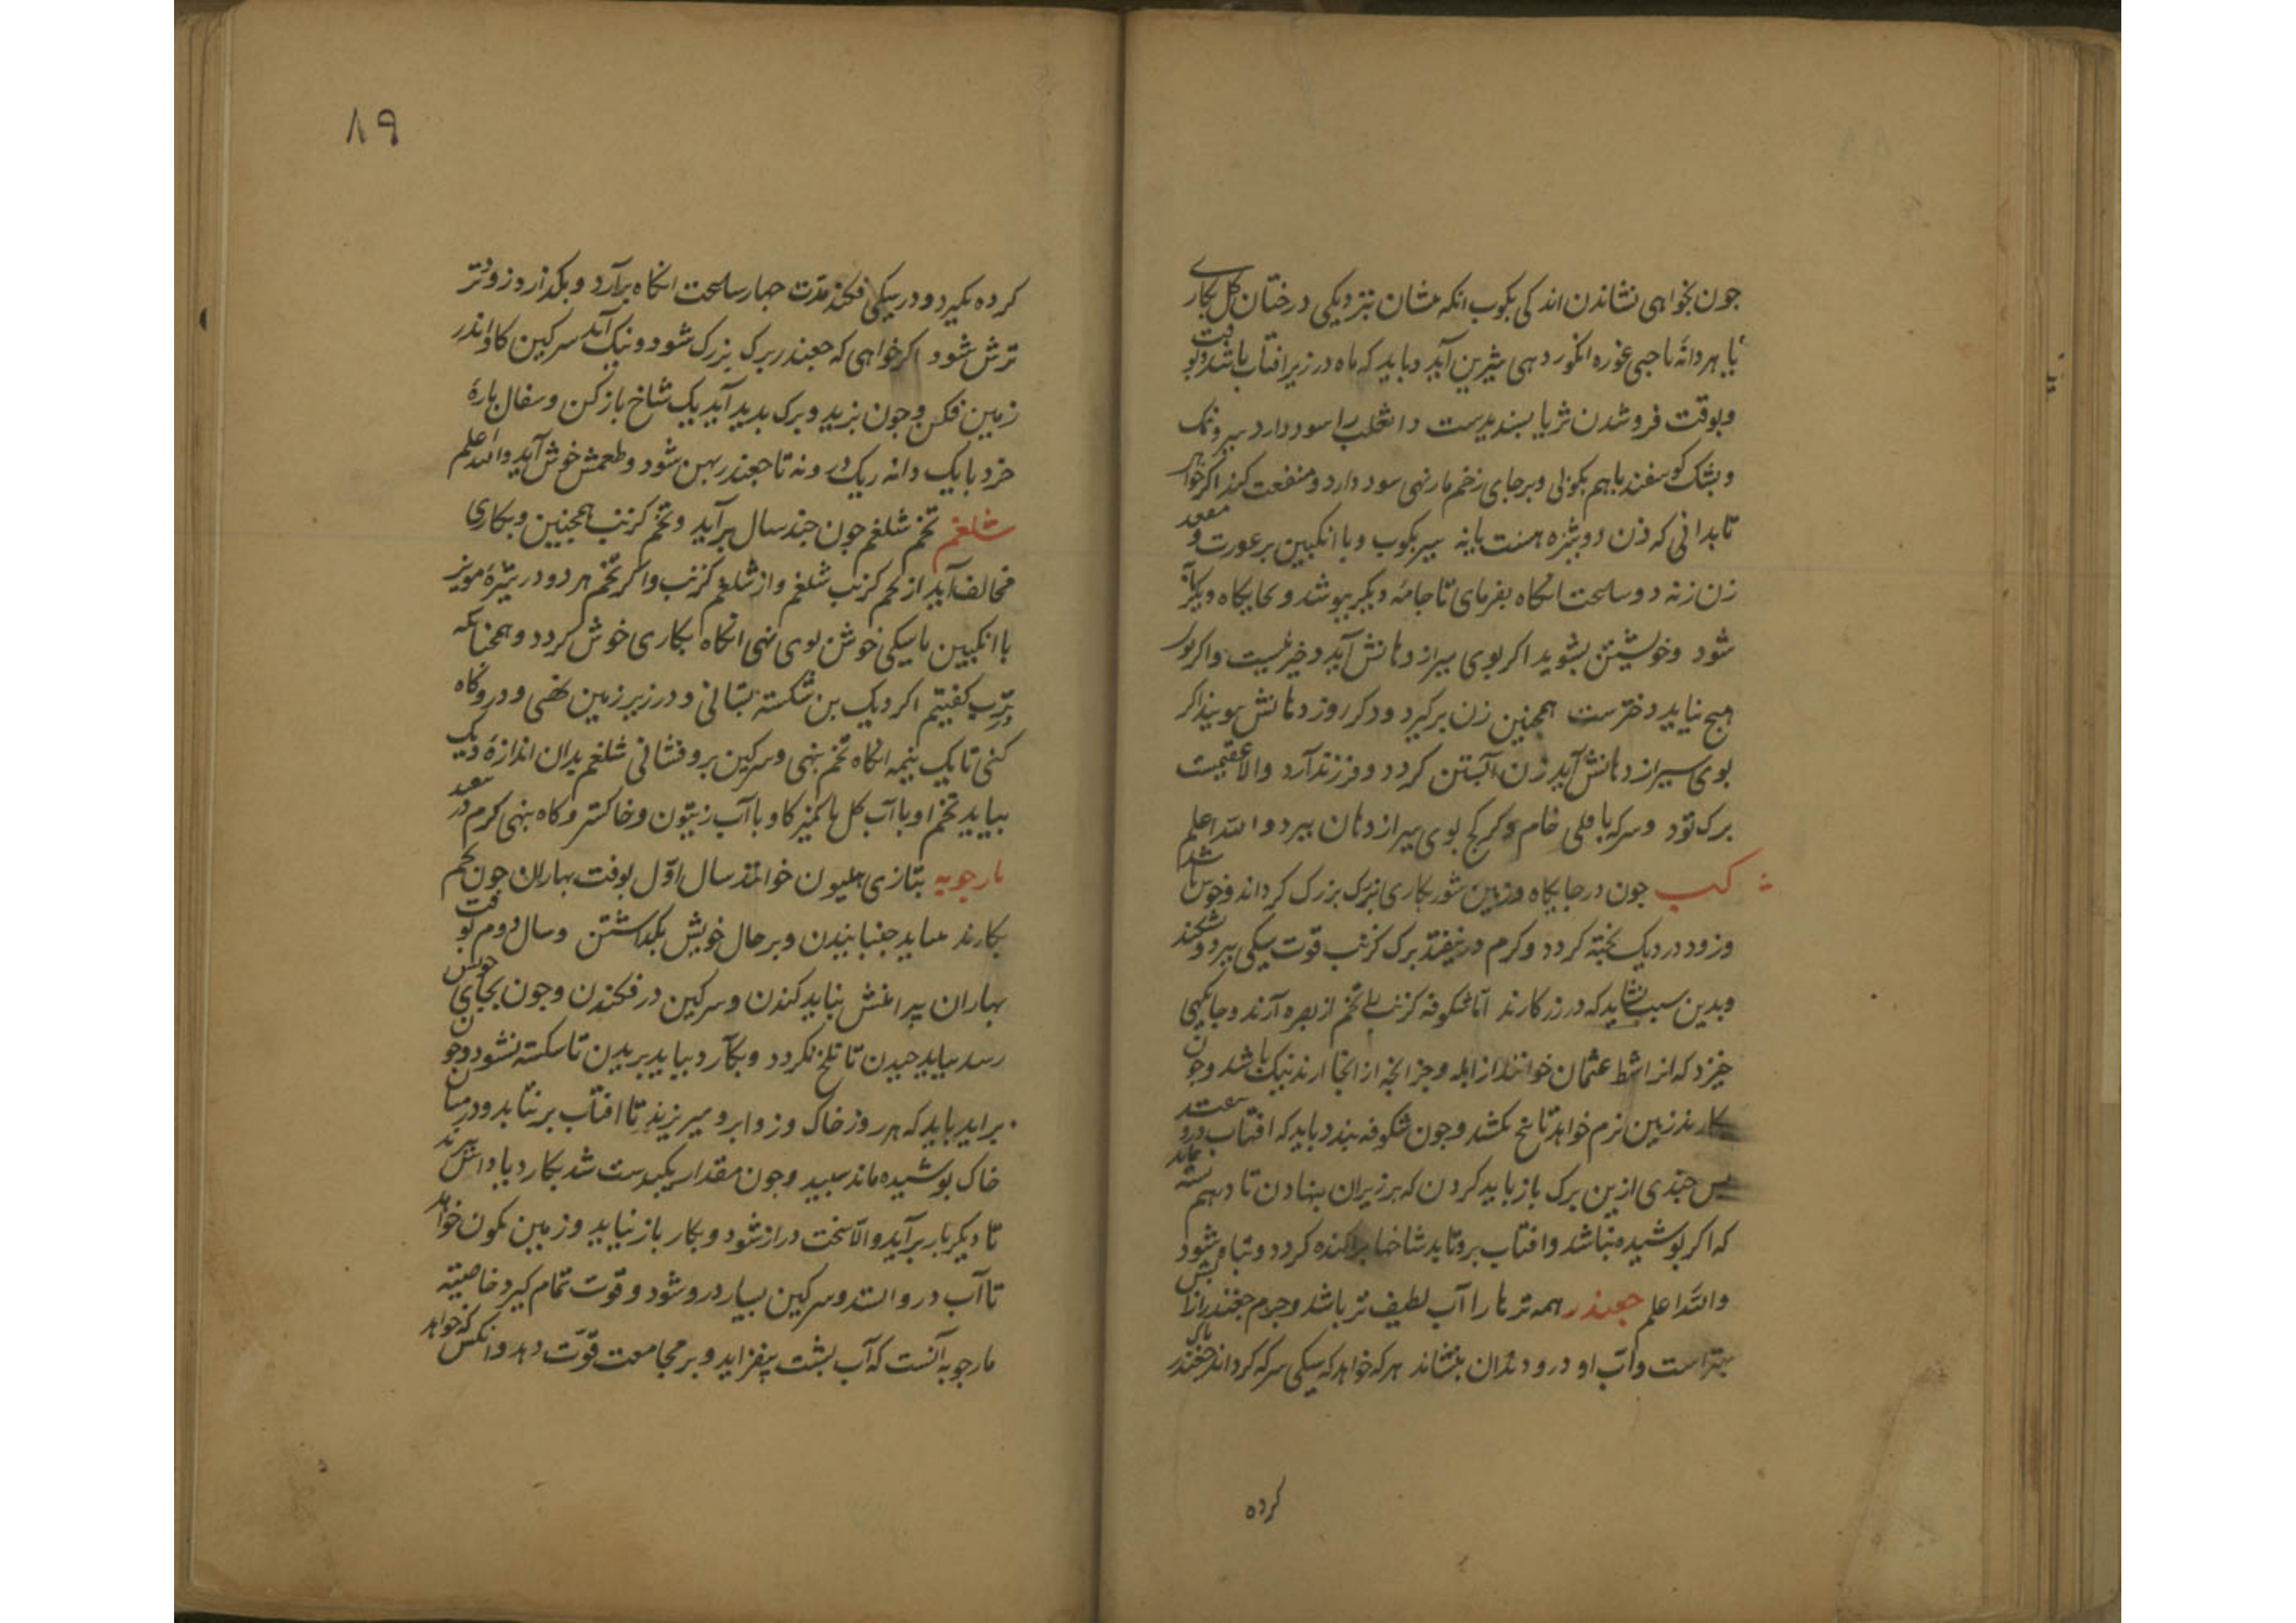 جون بخواهی نشاندن اندکی بکوب انکه بنشان بنزدیکی درختان کل بکاری
یا هر دانهٔ با حبی غوره انکور دهی شیرین آید و باید که ماه در زیر افتاب باشد و بوقت
وبوقت فروشدن ثریا بسندیدست داء الثعلب را سود دارد سیر و نمک
وبشک کوسفند باهم بکوبی وبرجای زخم مار نهی سود دارد و منفعت کند اکر خواهی
تا بدانی که زن دوشیزه هست یا نه سیر بکوب وبا انکبین بر عورت و مقعد
زن نه دو ساعت انکاه بفرمای تا جامهٔ دیکر ببوشد و بجایکاه دیکر
شود وخویشتن بشوید اکر بوی سیر از دهانش آید دختر نیست واکر بوی
هیچ نیاید دخترست همجنین زن برکیرد ودکر روز دهانش ببویند اکر
بوی سیر از دهانش آید زن آبستن کردد وفرزند آرد والا عقیمست
برک تود وسرکه باقلی خام و بوی سیر از دهان ببرد والله اعلم
جون در جایکاه وزمین شور بکاری برک بزرک کرداند وخوش باشد
وزود در دیک بخته کردد وکرم در نیفتد برک کرنب قوت سیکی ببرد و بشکند
وبدین سبب نشاید که در رز کارند اما شکوفه کرنب را تخم از بصره آرند و جایکهی
خیزد که انرا شط عثمان خوانند از ابله وجز انجه از انجا ارند نیک باشد وجون
کارند زمین نرم خواهد تا بیخ بکشد وجون شکوفه ببندد باید که افتاب درو نتابد
بس جندی ازین برک باز باید کردن که بر زبران نهادن تا درهم بسته ماند
که اکر بوشیده نباشد وافتاب بروتابد شاخها براکنده کردد وتباه شود
والله اعلم جعندر همه ترها را آب لطیف تر باشد وجرم جغندر از آبش
بهتر است وآب او درد دندان بنشاند هر که خواهد که سیکی سرکه کرداند جغندر باک
کرده
٨٩
کرده بکیرد ودر سیکی فکند مدت جهار ساعت انکاه برآرد و بکذارد زودتر
ترش شود اکر خواهی که جعندر برک بزرک شود ونیک آید سرکین کاو اندر
زمین فکن وجون بزید وبرک بدید آید یک شاخ باز کن وسفال بارهٔ
خرد با یک دانه ریک درو نه تا جعندر بهن شود وطعمش خوش آید والله اعلم
شلغم تخم شلغم جون جند سال برآید وتخم کرنب همجنین وبکاری
مخالف آید از تخم کرنب شلغم واز شلغم کرنب واکر تخم هر دو در شیرهٔ مویز
با انکبین یا سیکی خوش بوی نهی انکاه بکاری خوش کردد وهمجنانکه
در ترب کفتیم اکر دیک بن شکسته بستانی ودر زیر زمین نهی ودرو کاه
کنی تا یک نیمه انکاه تخم بنهی وسرکین بروفشانی شلغم بدان اندازهٔ دیک
بیاید تخم او با آب کل یا کمیز کاو با آب زیتون وخاکستر وکاه بنهی کرم در
مارجوبه بتازی هلیون خوانند سال اوّل بوقت بهاران جون تخم
بکارند نباید جنبانیدن وبر حال خویش بکذاشتن وسال دوم بوقت
بهاران پیرامنش بباید کندن وسرکین در فکندن وجون بجای خویش
رسد بباید جیدن تا تلخ نکردد وبکارد بباید بریدن تا شکسته نشود وجون
براید باید که هر روز خاک برو میریزند تا افتاب بر نتابد ودر میان
خاک بوشیده ماند سبید وجون مقدار یکبدست شد بکارد
تا دیکر بار برآید والّا سخت دراز شود وبکار باز نیاید وزمین نکون خواهد
تا آب درو استد وسرکین بسیار درو شود وقوت تمام کیرد خاصیتّه
مارجوبه آنست که آب بشت بیفزاید وبر مجامعت قوّت دهد وانکس که خواهد